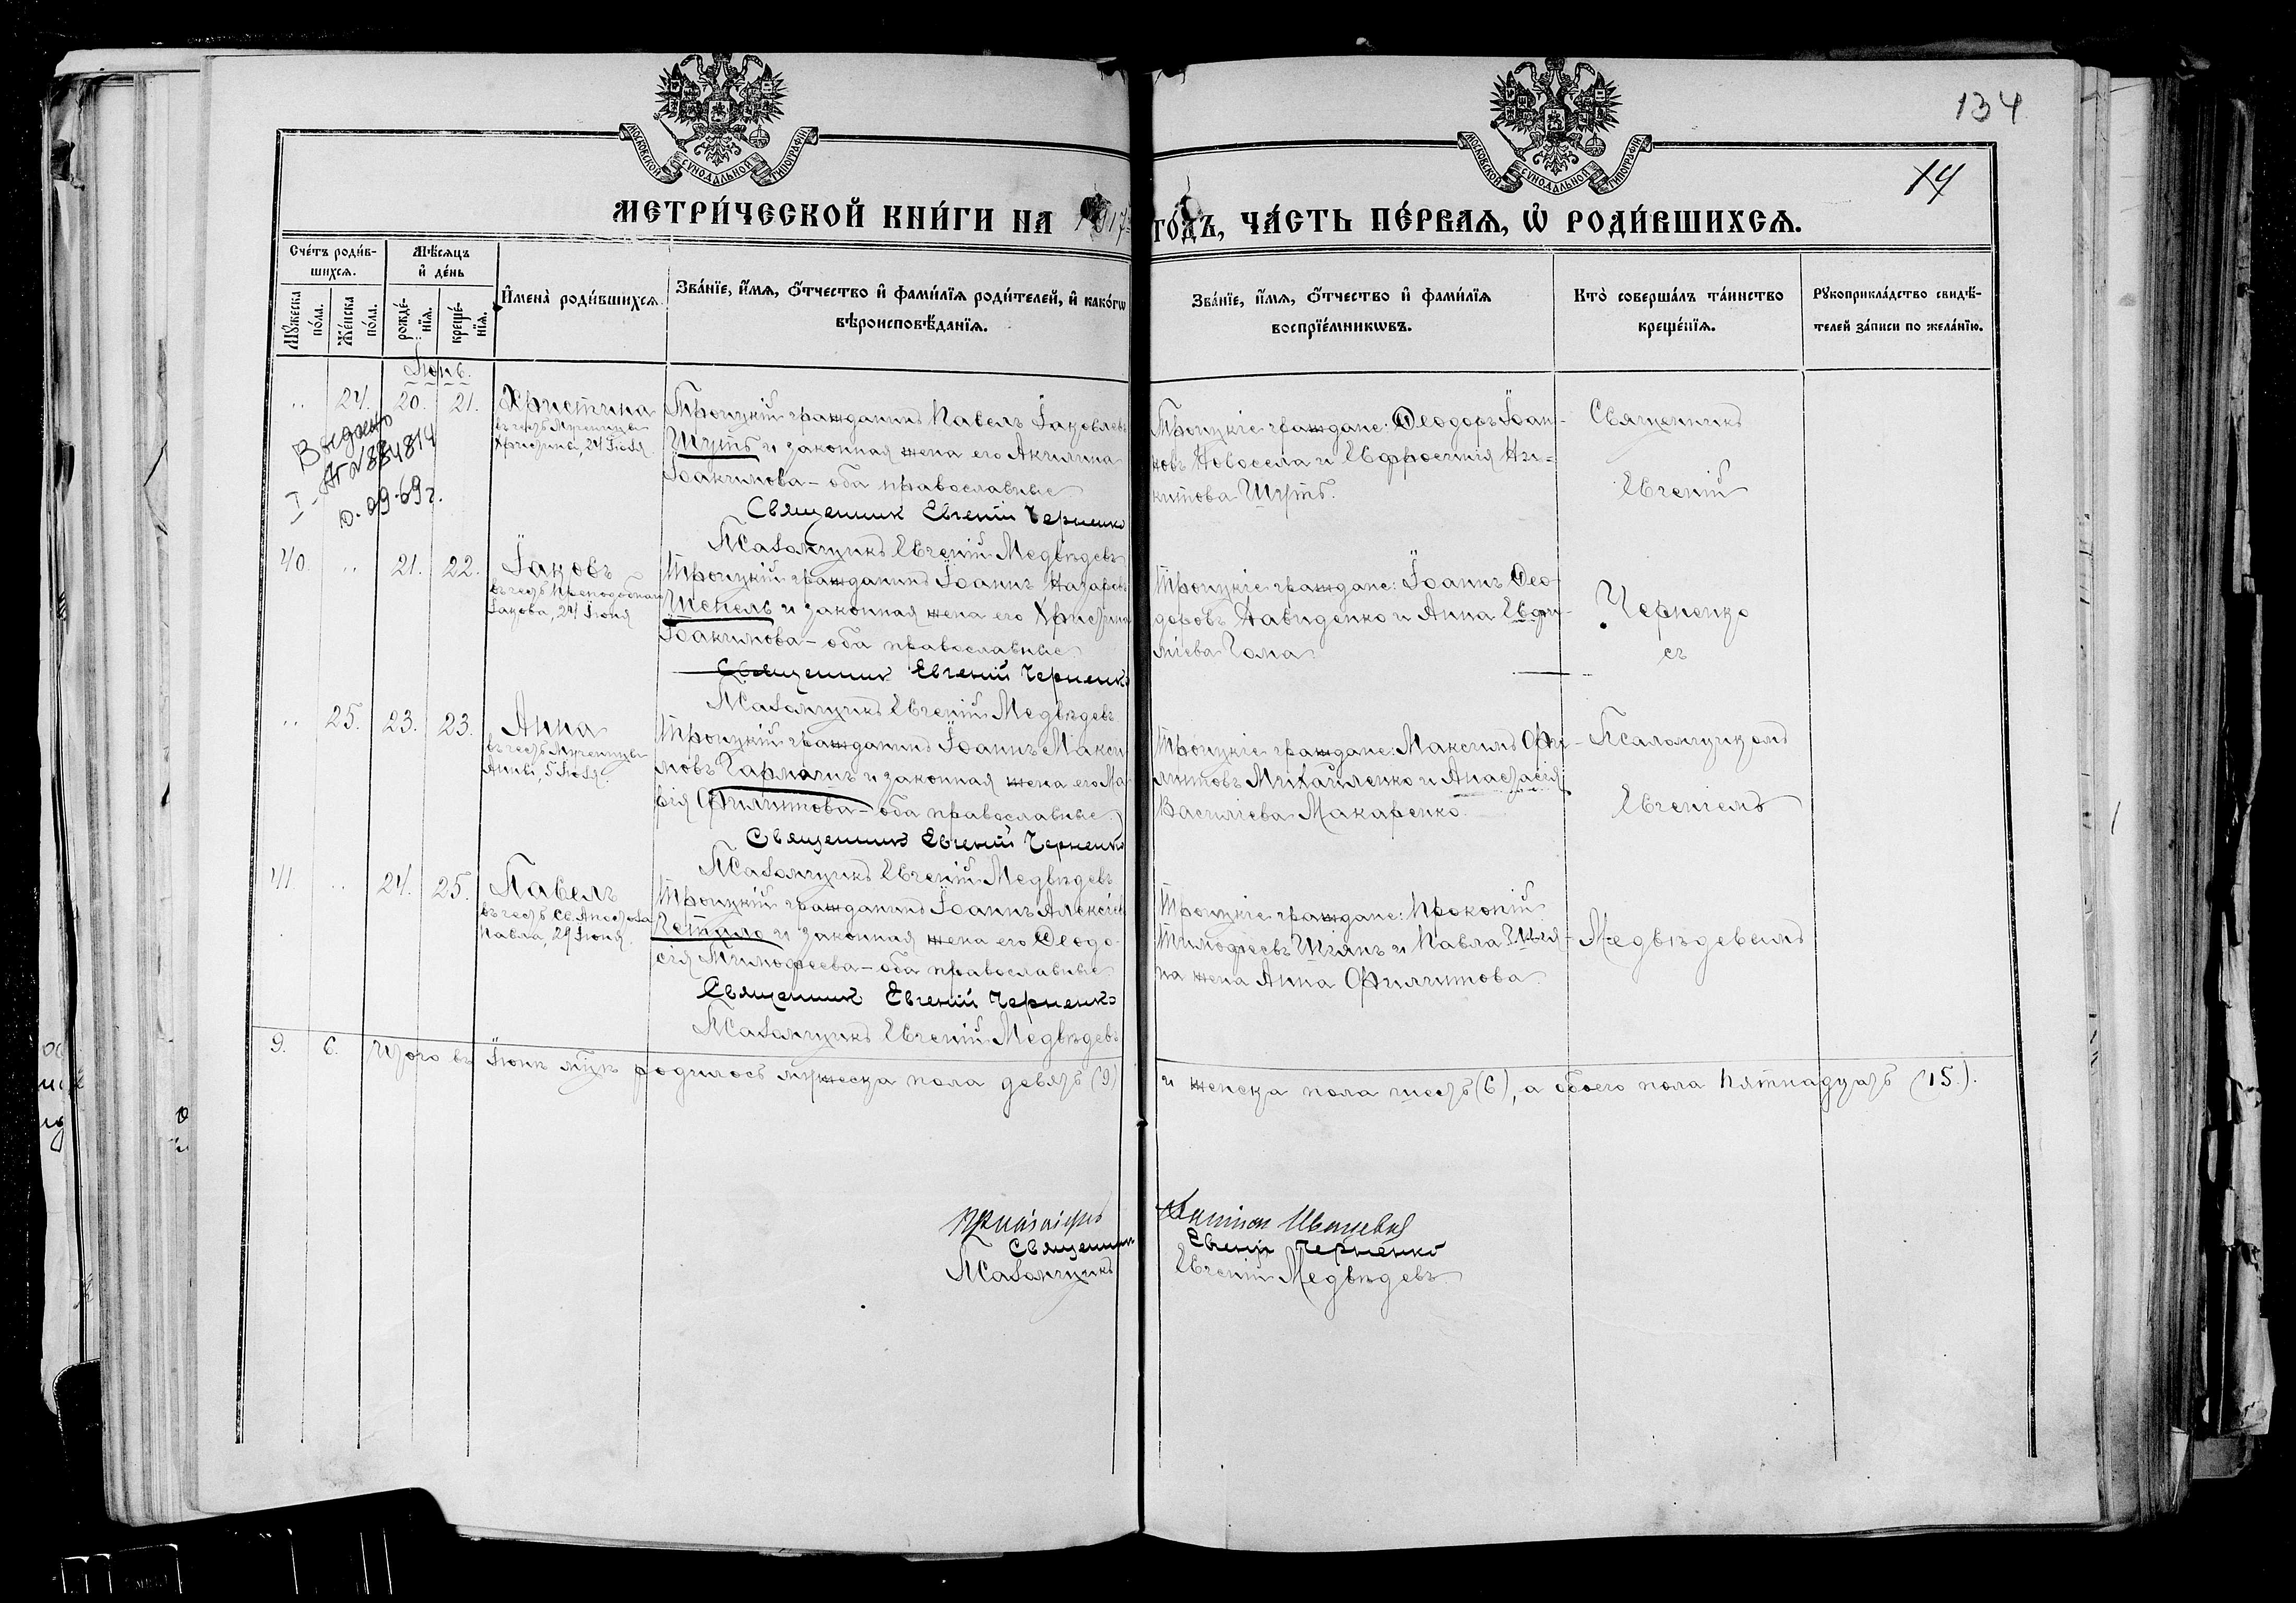 134
14
МОСКОВСКОЙ СѴНОДАЛЬНОЙ ТИПОГРАФІИ
МОСКОВСКОЙ СѴНОДАЛЬНОЙ ТИПОГРАФІИ
МЕТРИ́ЧЕСКОЙ КНИ́ГИ НА 1917 ГО́ДЪ, ЧА́СТЬ ПЕ́РВАѦ, Ѡ҆ РОДИ́ВШИХСѦ.
Сче́тъ роди́в-
шихсѧ.
Мꙋжеска по́ла.
Же́нска по́ла.
Мѣ́сѧцъ
и҆ де́нь
рожде́-
нїѧ.
креще́-
нїѧ.
И҆мена̀ роди́вшихсѧ.
Зва́нїе, и҆́мѧ, ѻ҆́тчество и҆ фами́лїѧ роди́телей, и҆ како́гѡ
вѣроисповѣ́данїѧ.
Зва́нїе, и҆́мѧ, ѻ҆́тчество и҆ фами́лїѧ
воспрїе́мникѡвъ.
Кто̀ соверша́лъ та́инство
креще́нїѧ.
Рꙋкоприкла́дство свидѣ́-
телей за́писи по жела́нїю.
Іюнь.
" 24. 20. 21. Христина
въ честь Мученицы
Христины, 24 Іюля
Выдано
I-АП №884814
10.09.69 г.
Троицкій гражданинъ Павелъ Іаковлевъ
Шутъ и законная жена его Акилина
Іоакимова – оба православные
Священник Евгеній Черненко
Псаломщикъ Евгеній Медвѣдевъ
Троицкіе граждане: Ѳеодоръ Іоан-
новъ Новосела и Евфросинія Ни-
китова Шутъ.
Священникъ
Евгеній
40. " 21. 22. Іаковъ
въ честь Преподобнаго
Іакова, 24 Іюня
Троицкій гражданинъ Іоаннъ Назаровъ
Шепель и законная жена его Христина
Іоакимова – оба православные
Священник Евгеній Черненко
Псаломщикъ Евгеній Медвѣдевъ
Троицкіе граждане: Іоаннъ Ѳео-
доровъ Давиденко и Анна Евфи-
міева Чома
Черненко
съ
" 25. 23. 23. Анна
въ честь Мученицы
Анны, 5 Іюля.
Троицкій гражданинъ Іоаннъ Макси-
мовъ Гармашъ и законная жена его Ма-
рія Филиппова – оба православные
Священник Евгеній Черненко
Псаломщикъ Евгеній Медвѣдевъ
Троицкіе граждане: Максимъ Фи-
липповъ Михайленко и Анастасія
Василіева Макаренко.
Псаломщикомъ
Евгеніемъ
41. " 24. 25. Павелъ
въ честь Св. Апостола
Павла, 29 Іюня.
Троицкій гражданинъ Іоаннъ Алексіевъ
и законная жена его Ѳеодо-
сія Тимофеева – оба православные
Священник Евгеній Черненко
Псаломщикъ Евгеній Медвѣдевъ
Троицкіе граждане: Прокопій
Тимофеевъ Шіянъ и Павла Шія-
на жена Анна Филиппова.
Медвѣдевымъ
9. 6. Итого въ Іюнѣ мцѣ родилось мужеска пола девять (9) и женска пола шесть (6), а обоего пола пятнадцать (15.).
Священник Евгеній Черненко
Псаломщикъ Евгеній Медвѣдевъ.